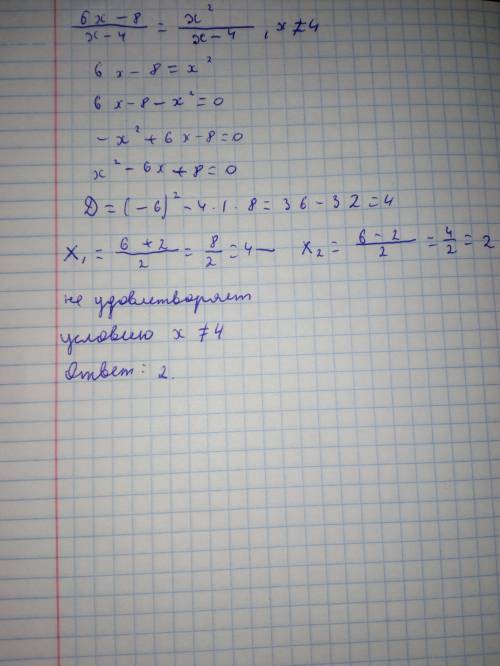 (6x-8)/(x-4) = x²/(x-4), x≠4
6x-8=x²
6x-8-x²=0
-x²+6x-8=0
x²-6x+8=0
D=(-6)²-4·1·8=36-32=4
X₁=(6+2)/2=8/2=4— X₂=(6-2)/2=4/2=2
не удовлетворяет
условию x≠4
Ответ: 2.